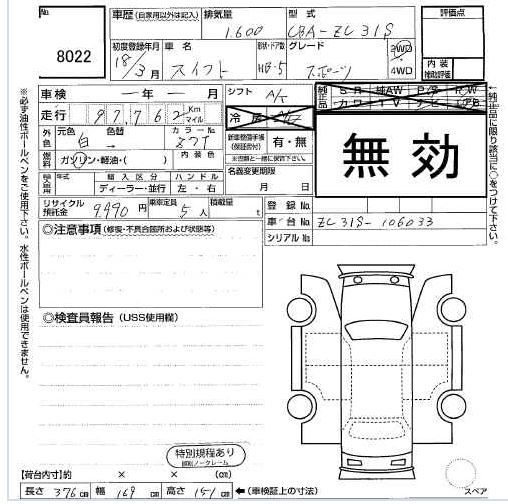 No. 8022
車歴 (自家用以外は記入)
排気量 1.600
型式 CBA-ZC31S
評価点
初度登録年月 18/3月
車名 スイフト
形状・ドア数 HB・5
グレード スポーツ
2WD
4WD
内装
補助評価
車検 ―年―月
シフト A/T
純正品
SR 純AW P/S P/W
カワ TV ナビ エアB
走行 97762 Km マイル
冷房
外色 元色 白 色替 →
カラーNo. Z7T
新車整備手帳 (保証書付) 有・無
※書類と一緒に保管下さい
無効
燃料 ガソリン・軽油・( )
内装色
名義変更期限 月 日
輸入車用 年式
輸入区分 ディーラー・並行
ハンドル 左・右
リサイクル預託金 9.490円
乗車定員 5人
積載量 t
登録No.
車台No. ZC31S-106033
シリアルNo.
◎注意事項(修復・不具合箇所および状態等)
◎検査員報告(USS使用欄)
特別規程あり
【荷台内寸】約 × × (cm)
長さ 376cm 幅 169cm 高さ 151cm ←(車検証上の寸法)
スペア
※必ず油性ボールペンをご使用下さい。水性ボールペンは使用できません。
←純正品に限り該当に○をつけて下さい。